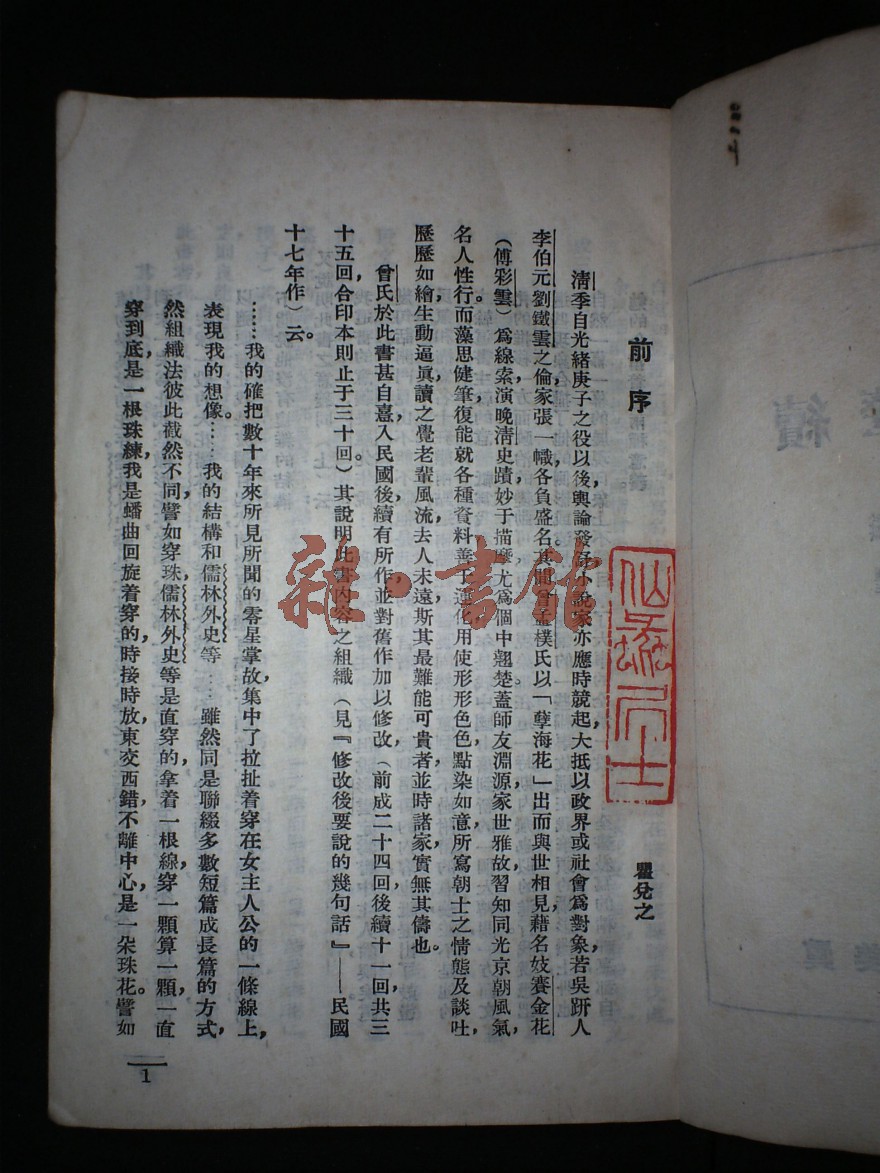 前序
瞿兌之
清季自光緒庚子之役以後，輿論發舒，小說家亦應時競起，大抵以政界或社會爲對象，若吳趼人
李伯元劉鐵雲之倫，家張一幟，各負盛名，其間曾孟樸氏以「孽海花」出而與世相見，藉名妓賽金花
（傅彩雲）爲線索，演晚清史蹟，妙于描摩，尤爲個中翹楚。蓋師友淵源，家世雅故，習知同光京朝風氣，
名人性行。而藻思健筆，復能就各種資料，善于運化用使形形色色，點染如意，所寫朝士之情態及談吐，
歷歷如繪，生動逼眞，讀之覺老輩風流，去人未遠，斯其最難能可貴者，並時諸家，實無其儔也。
曾氏於此書甚自憙，入民國後，續有所作，並對舊作加以修改，（前成二十四回，後續十一回，共三
十五回，合印本則止于三十回。）其說明此書內容之組織（見『修改後要說的幾句話』——民國
十七年作）云。
……我的確把數十年來所見所聞的零星掌故，集中了拉扯着穿在女主人公的一條線上，
表現我的想像。……我的結構和儒林外史等……雖然同是聯綴多數短篇成長篇的方式，
然組織法彼此截然不同，譬如穿珠，儒林外史等是直穿的，拿着一根線，穿一顆算一顆，一直
穿到底，是一根珠練，我是蟠曲回旋着穿的，時接時放，東交西錯，不離中心，是一朵珠花。譬如
1
雜·書館